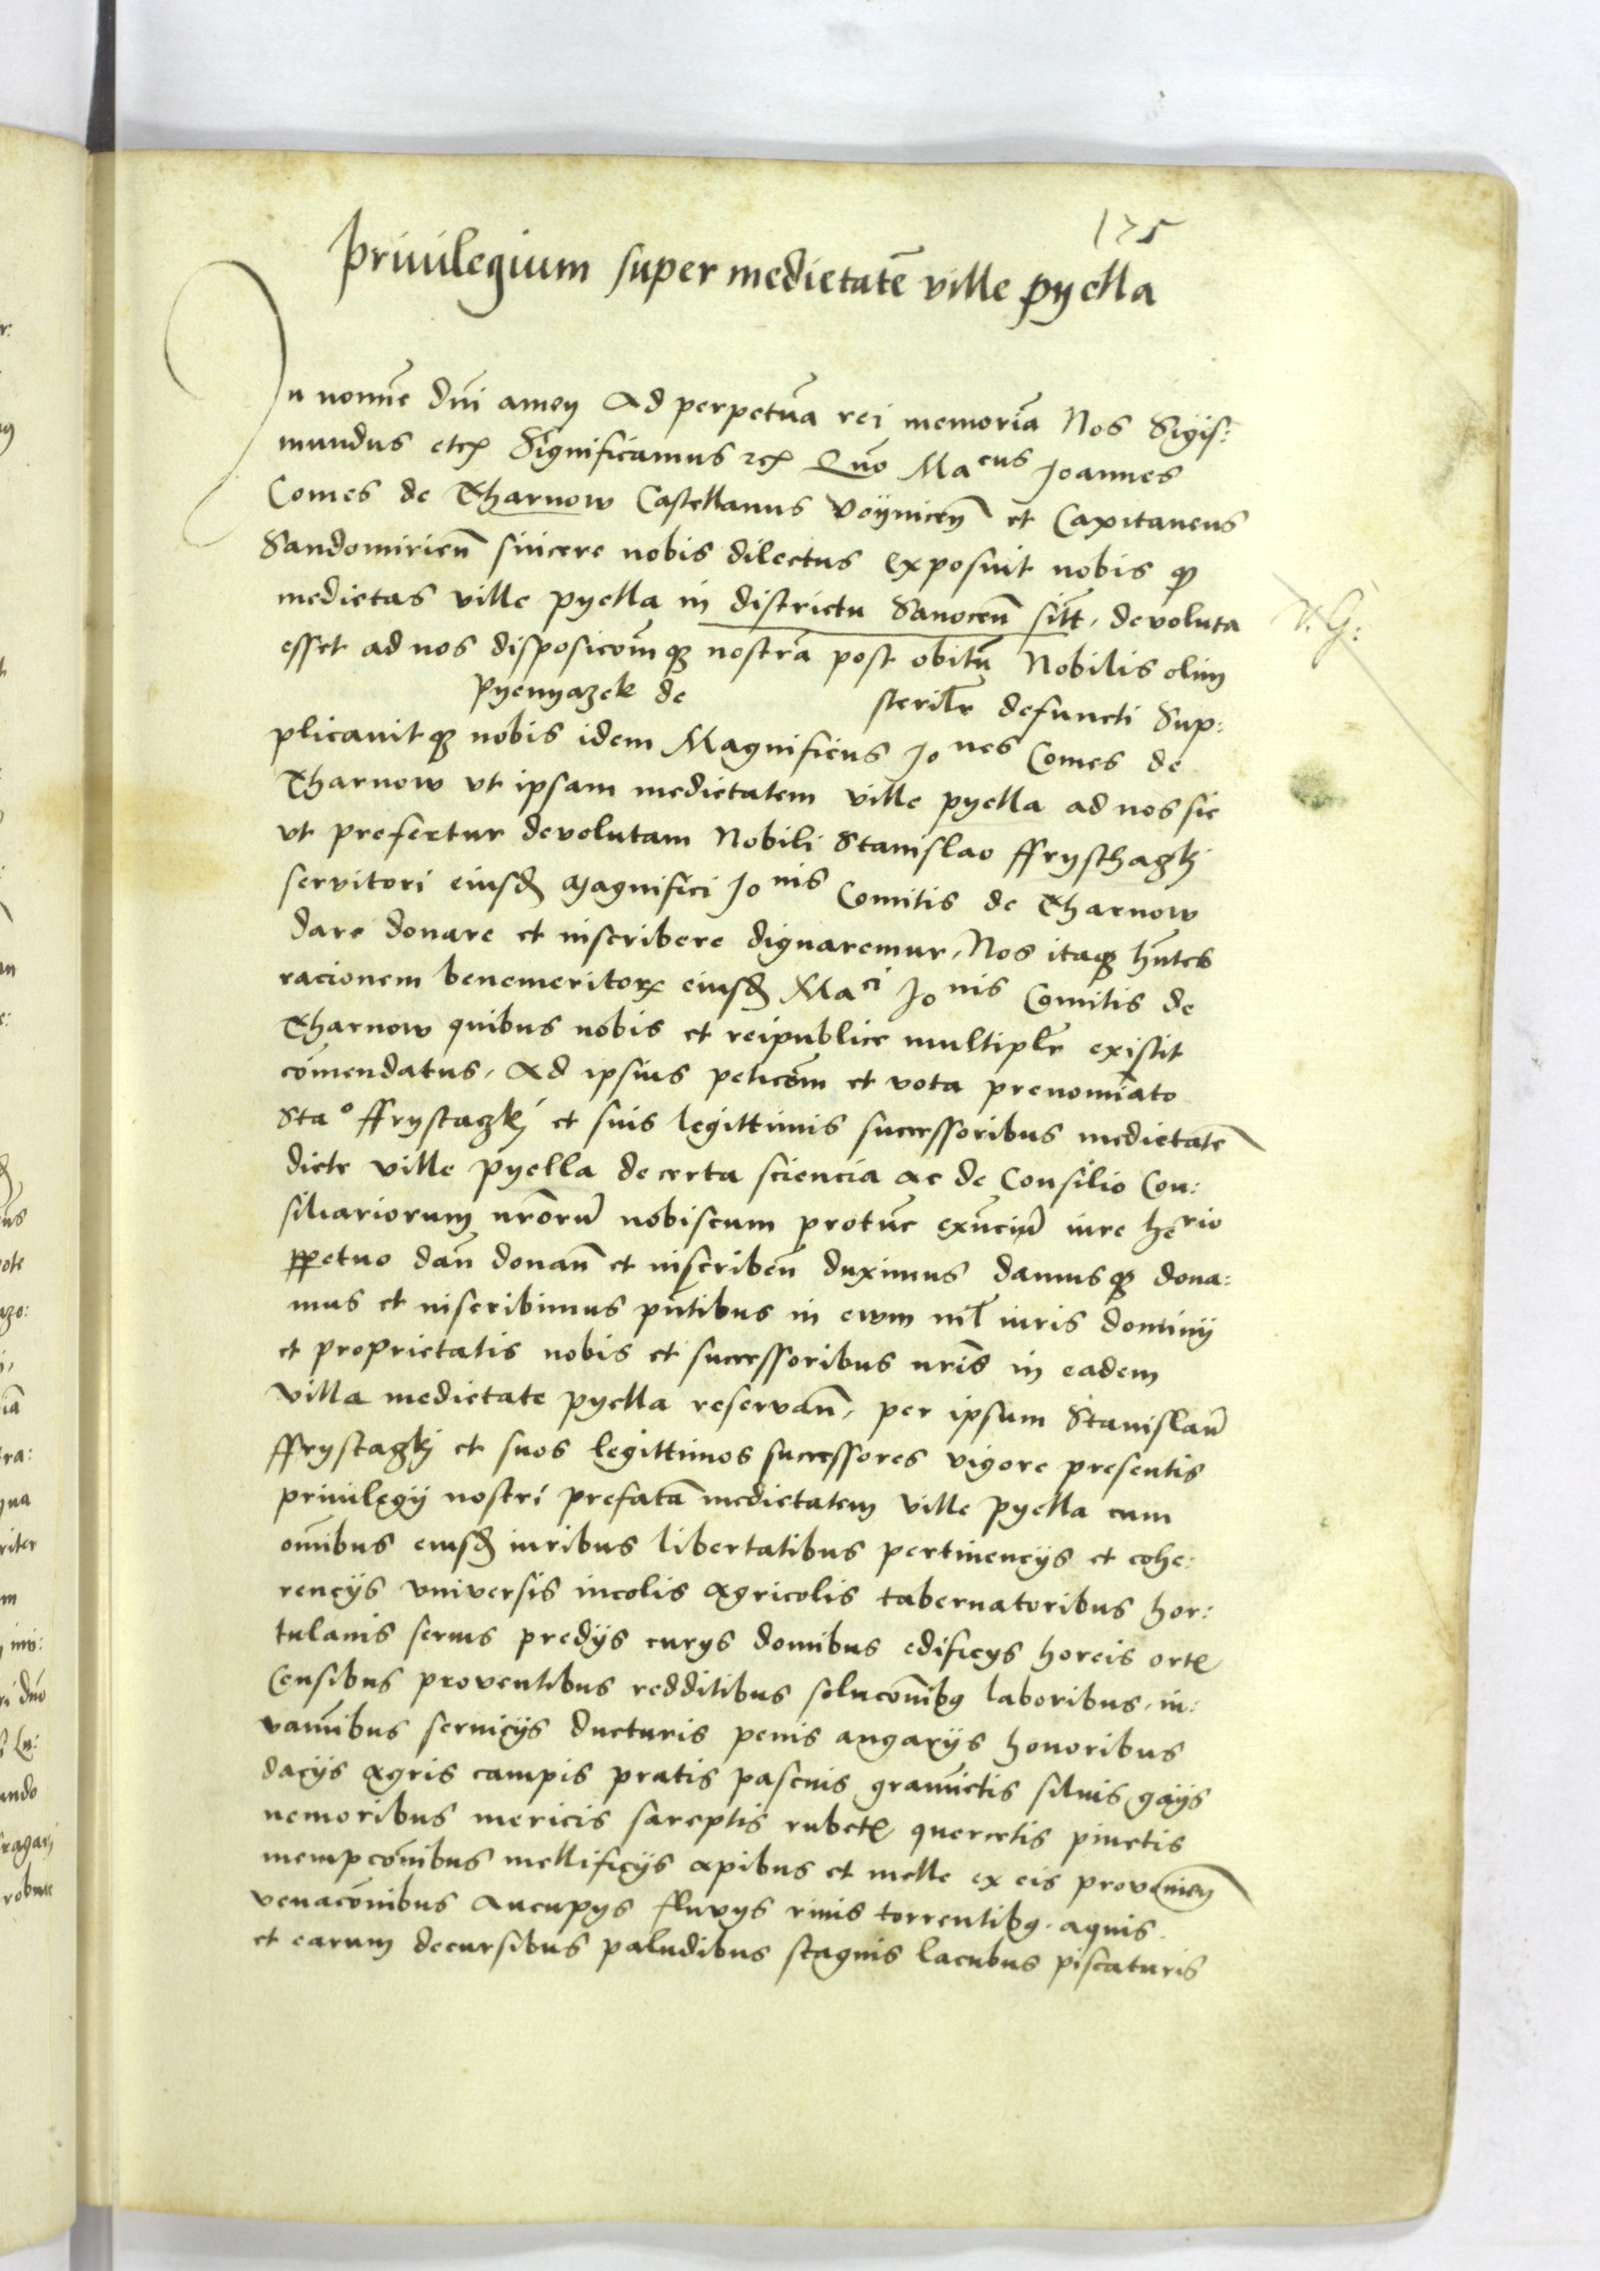 175
Priuilegium super medietatē ville pyella
In nomīe dn̄i amen Ad perpetuā rei memoriā Nos Sigis:
mundus etc Significamus etc Quō Ma cus Joannes
Comes de Tharnow Castellanus Voynicen̄ et Capitaneus
Sandomirien̄ sincere nobis dilectus exposuit nobis qꝫ
medietas ville pyella in districtu Sanocen̄ sitt, devoluta
esset ad nos disposicōmqꝫ nostrā post obitū Nobilis olim
pyenyazek de sterilr̄ defuncti Sup:
plicauitqꝫ nobis idem Magnificus Jo nes Comes de
Tharnow vt ipsam medietatem ville pyella ad nos sic
vt prefertur devolutam Nobili Stanislao ffrysthagkj
servitori eiusd Magnifici Jo nis Comitis de Tharnow
dare donare et inscribere dignaremur, Nos itaqꝫ hn̄tes
racionem benemeritoꝝ eiusd Ma ci Jo nis Comitis de
Tharnow quibus nobis et reipublice multiplr̄ existit
cōmendatus, Ad ipsius peticōm et vota prenomīato
Sta o ffrystagkj et suis legittimis successoribus medietatē
dicte ville pyella de certa sciencia ac de Consilio Con:
siliariorum nr̄orū nobiscum protūc exn̄ciū iure he rio
ꝑpetuo dan̄ donan̄ et inscriben̄ duximus damusqꝫ dona:
mus et inscribimus pn̄tibus in ewm nil iuris dominij
et proprietatis nobis et successoribus nr̄is in eadem
villa medietate pyella reservan̄, per ipsum Stanislaū
ffrystagkj et suos legittimos successores vigore presentis
priuilegij nostri prefatā medietatem ville pyella cum
om̄ibus eiusd iuribus libertatibus pertinencijs et cohe:
rencijs vniversis incolis agricolis tabernatoribus hor:
tulanis servis predijs curys domibus edificys horeis ort
Censibus proventibus redditibus solucōnibꝫ laboribus, iu:
vamībus seruicijs ducturis penis angarijs honoribus
dacijs agris campis pratis pascuis gramīetis siluis gaijs
nemoribus mericis sareptis rubet quercetis pinetis
mempcōnibus mellificijs apibus et melle ex eis provenien̄
venacōnibus Aucupys fluvys riuis torrentibꝫ aquis
et earum decursibus paludibus stagnis lacubus piscaturis